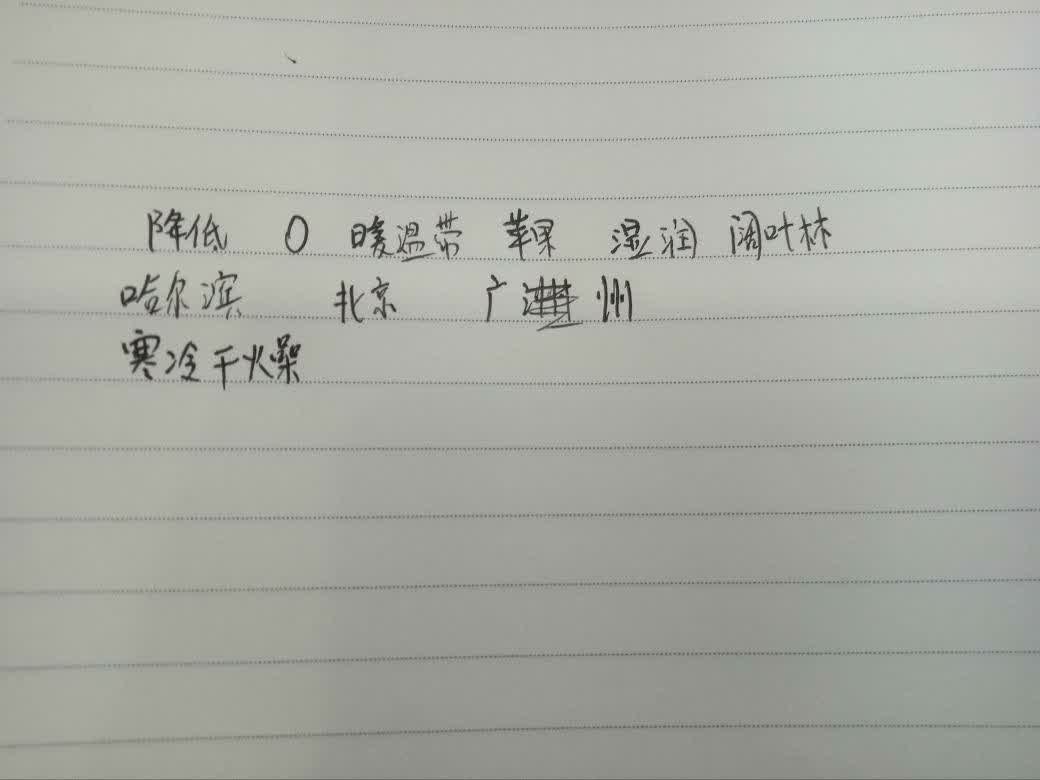 降低 0 暖温带 苹果 湿润 阔叶林
哈尔滨 北京 广州
寒冷干燥